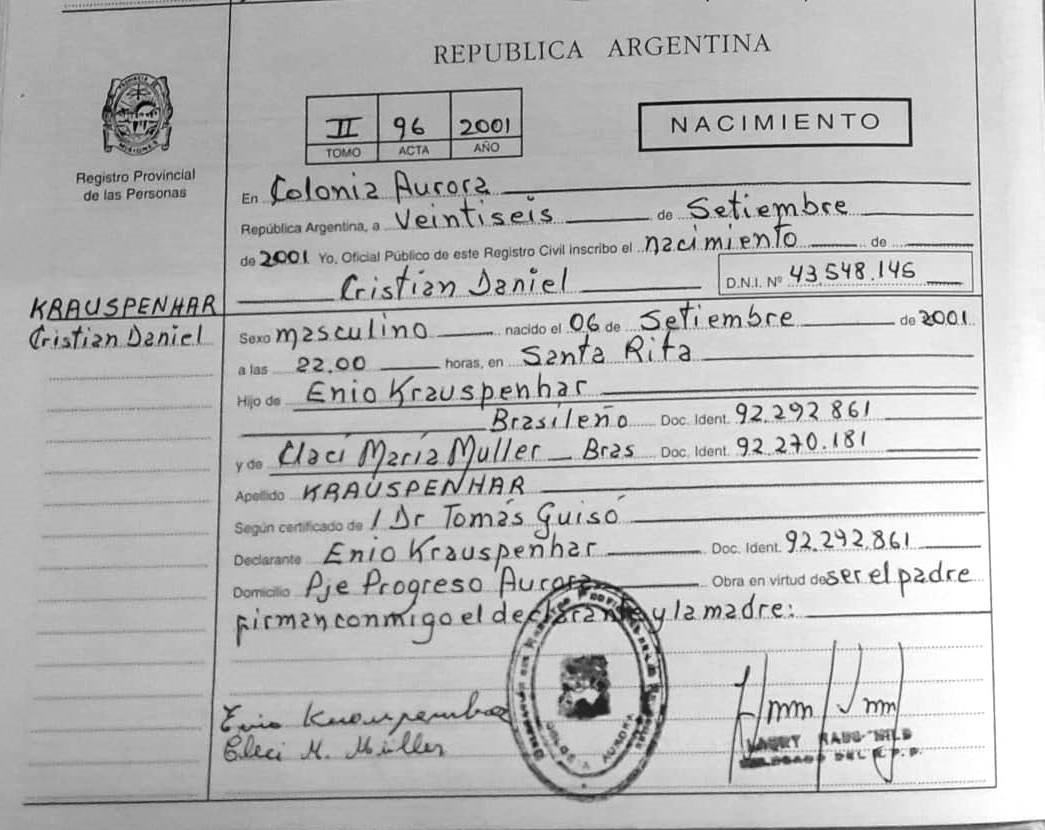 REPUBLICA ARGENTINA
II 96 2001
TOMO ACTA AÑO
NACIMIENTO
Registro Provincial
de las Personas
En Colonia Aurora
República Argentina, a Veintiseis de Setiembre
de 2001 Yo, Oficial Público de este Registro Civil inscribo el nacimiento de
Cristian Daniel D.N.I. Nº 43.548.145
KRAUSPENHAR
Cristian Daniel
Sexo masculino nacido el 06 de Setiembre de 2001
a las 22.00 horas, en Santa Rita
Hijo de Enio Krauspenhar
Brasileño Doc. Ident. 92.292.861
y de Claci María Muller Bras Doc. Ident. 92.270.181
Apellido KRAUSPENHAR
Según certificado de Dr Tomás Guisó
Declarante Enio Krauspenhar Doc. Ident. 92.292.861
Domicilio Pje Progreso Aurora Obra en virtud de ser el padre
firman conmigo el declarante y la madre:
Enio
Cleci M. Müller
DEL R.P.P.